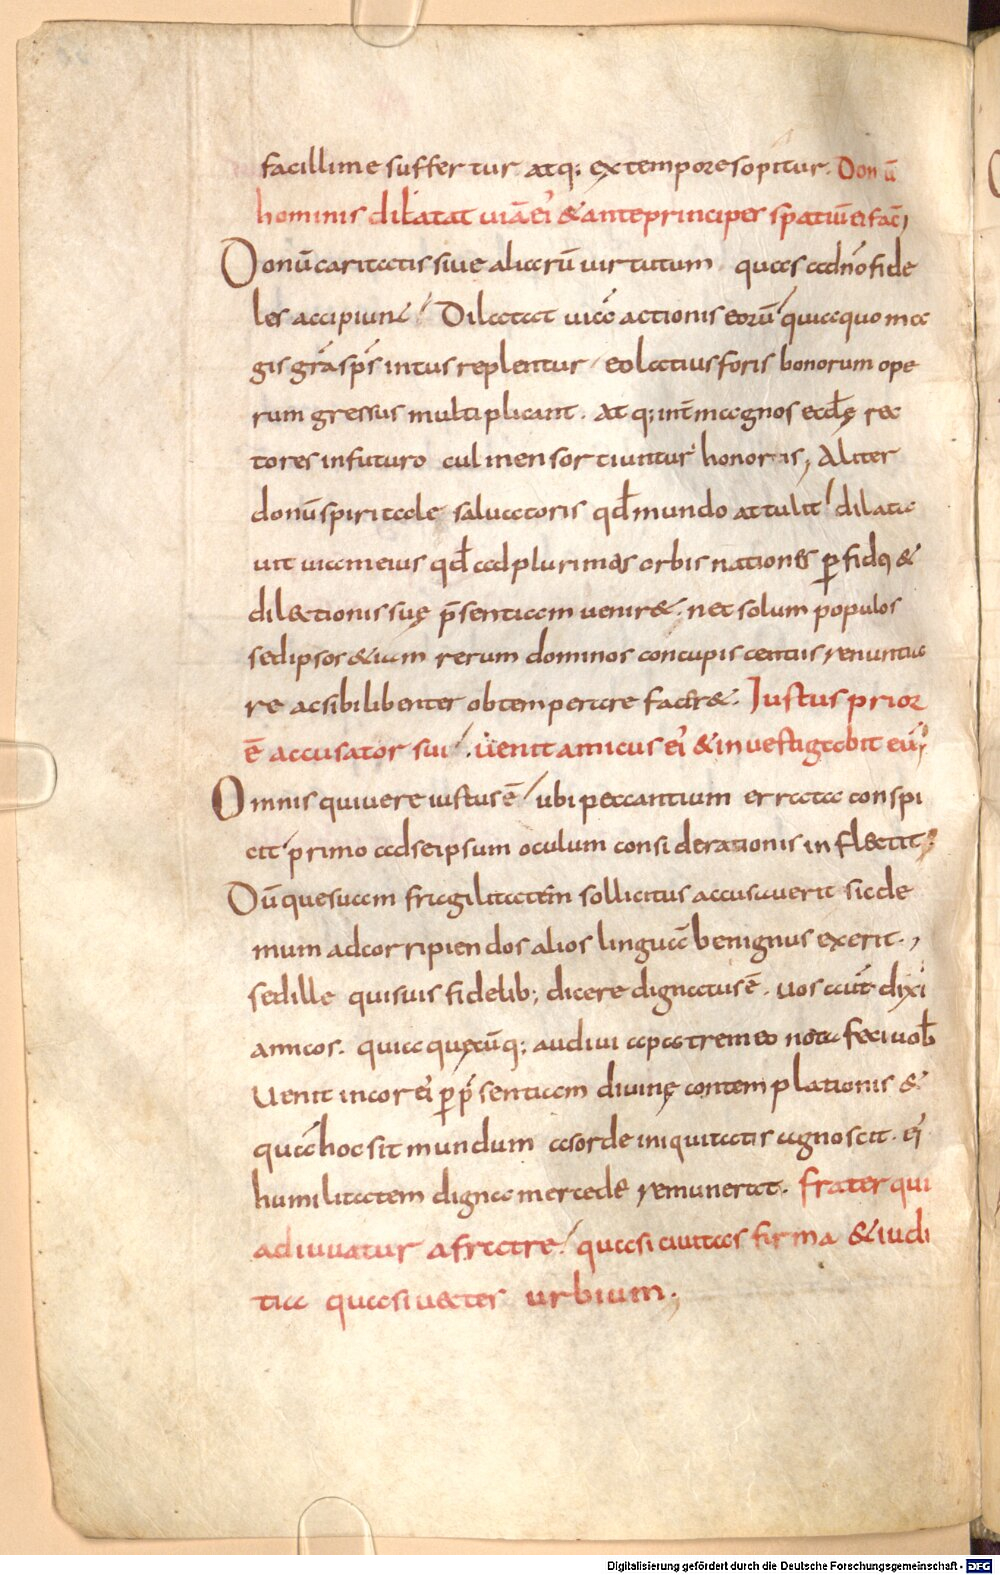 facillime suffertur atq; extempore sopitur. Donū
hominis dilatat uiā ei' & ante principes spatiū ei faci
Donū caritatis siue aliarū uirtutum quas a dno fide
les accipiunt Dilatat uiā actionis eorū quia quo ma
gis grā sps intus replentur eo latius foris bonorum ope
rum gressus multiplicant. At q; int magnos eccle rec
tores in futuro culmen sortiuntur honoris, Aliter
donū spiritale saluatoris qđ mundo attulit dilata
uit uiam eius qđ ad plurimas orbis nationes p fidē &
dilectionis suę psentiam uenir&. nec solum populos
sed ipsos &iam rerum dominos concupiscentiis renuntia
re ac sibi libenter obtemperare facer&. Iustus prior
ē accusator sui. Uenit amicus ei' & inuestigabit eū
Omnis qui uere iustus ē ubi peccantium errata conspi
cit primo ad se ipsum oculum considerationis inflectit;
Dūque suam fragilitatem sollicitus accusauerit sic de
mum ad corripiendos alios linguā benignus exerit.,
sed ille quisuis fidelib; dicere dignatus ē. uos aut dixi
amicos. quia quęcūq; audiui a patre meo nota feci uob
Uenit in cor ei' p psentiam diuinę contemplationis &
quā hoc sit mundum a sorde iniquitatis agnoscit. ei'
humilitatem digna mercede remunerat. Frater qui
adiuuatur a fratre. quasi ciuitas firma & iudi
tia quasi uectes urbium.
Digitalisierung gefördert durch die Deutsche Forschungsgemeinschaft - DFG